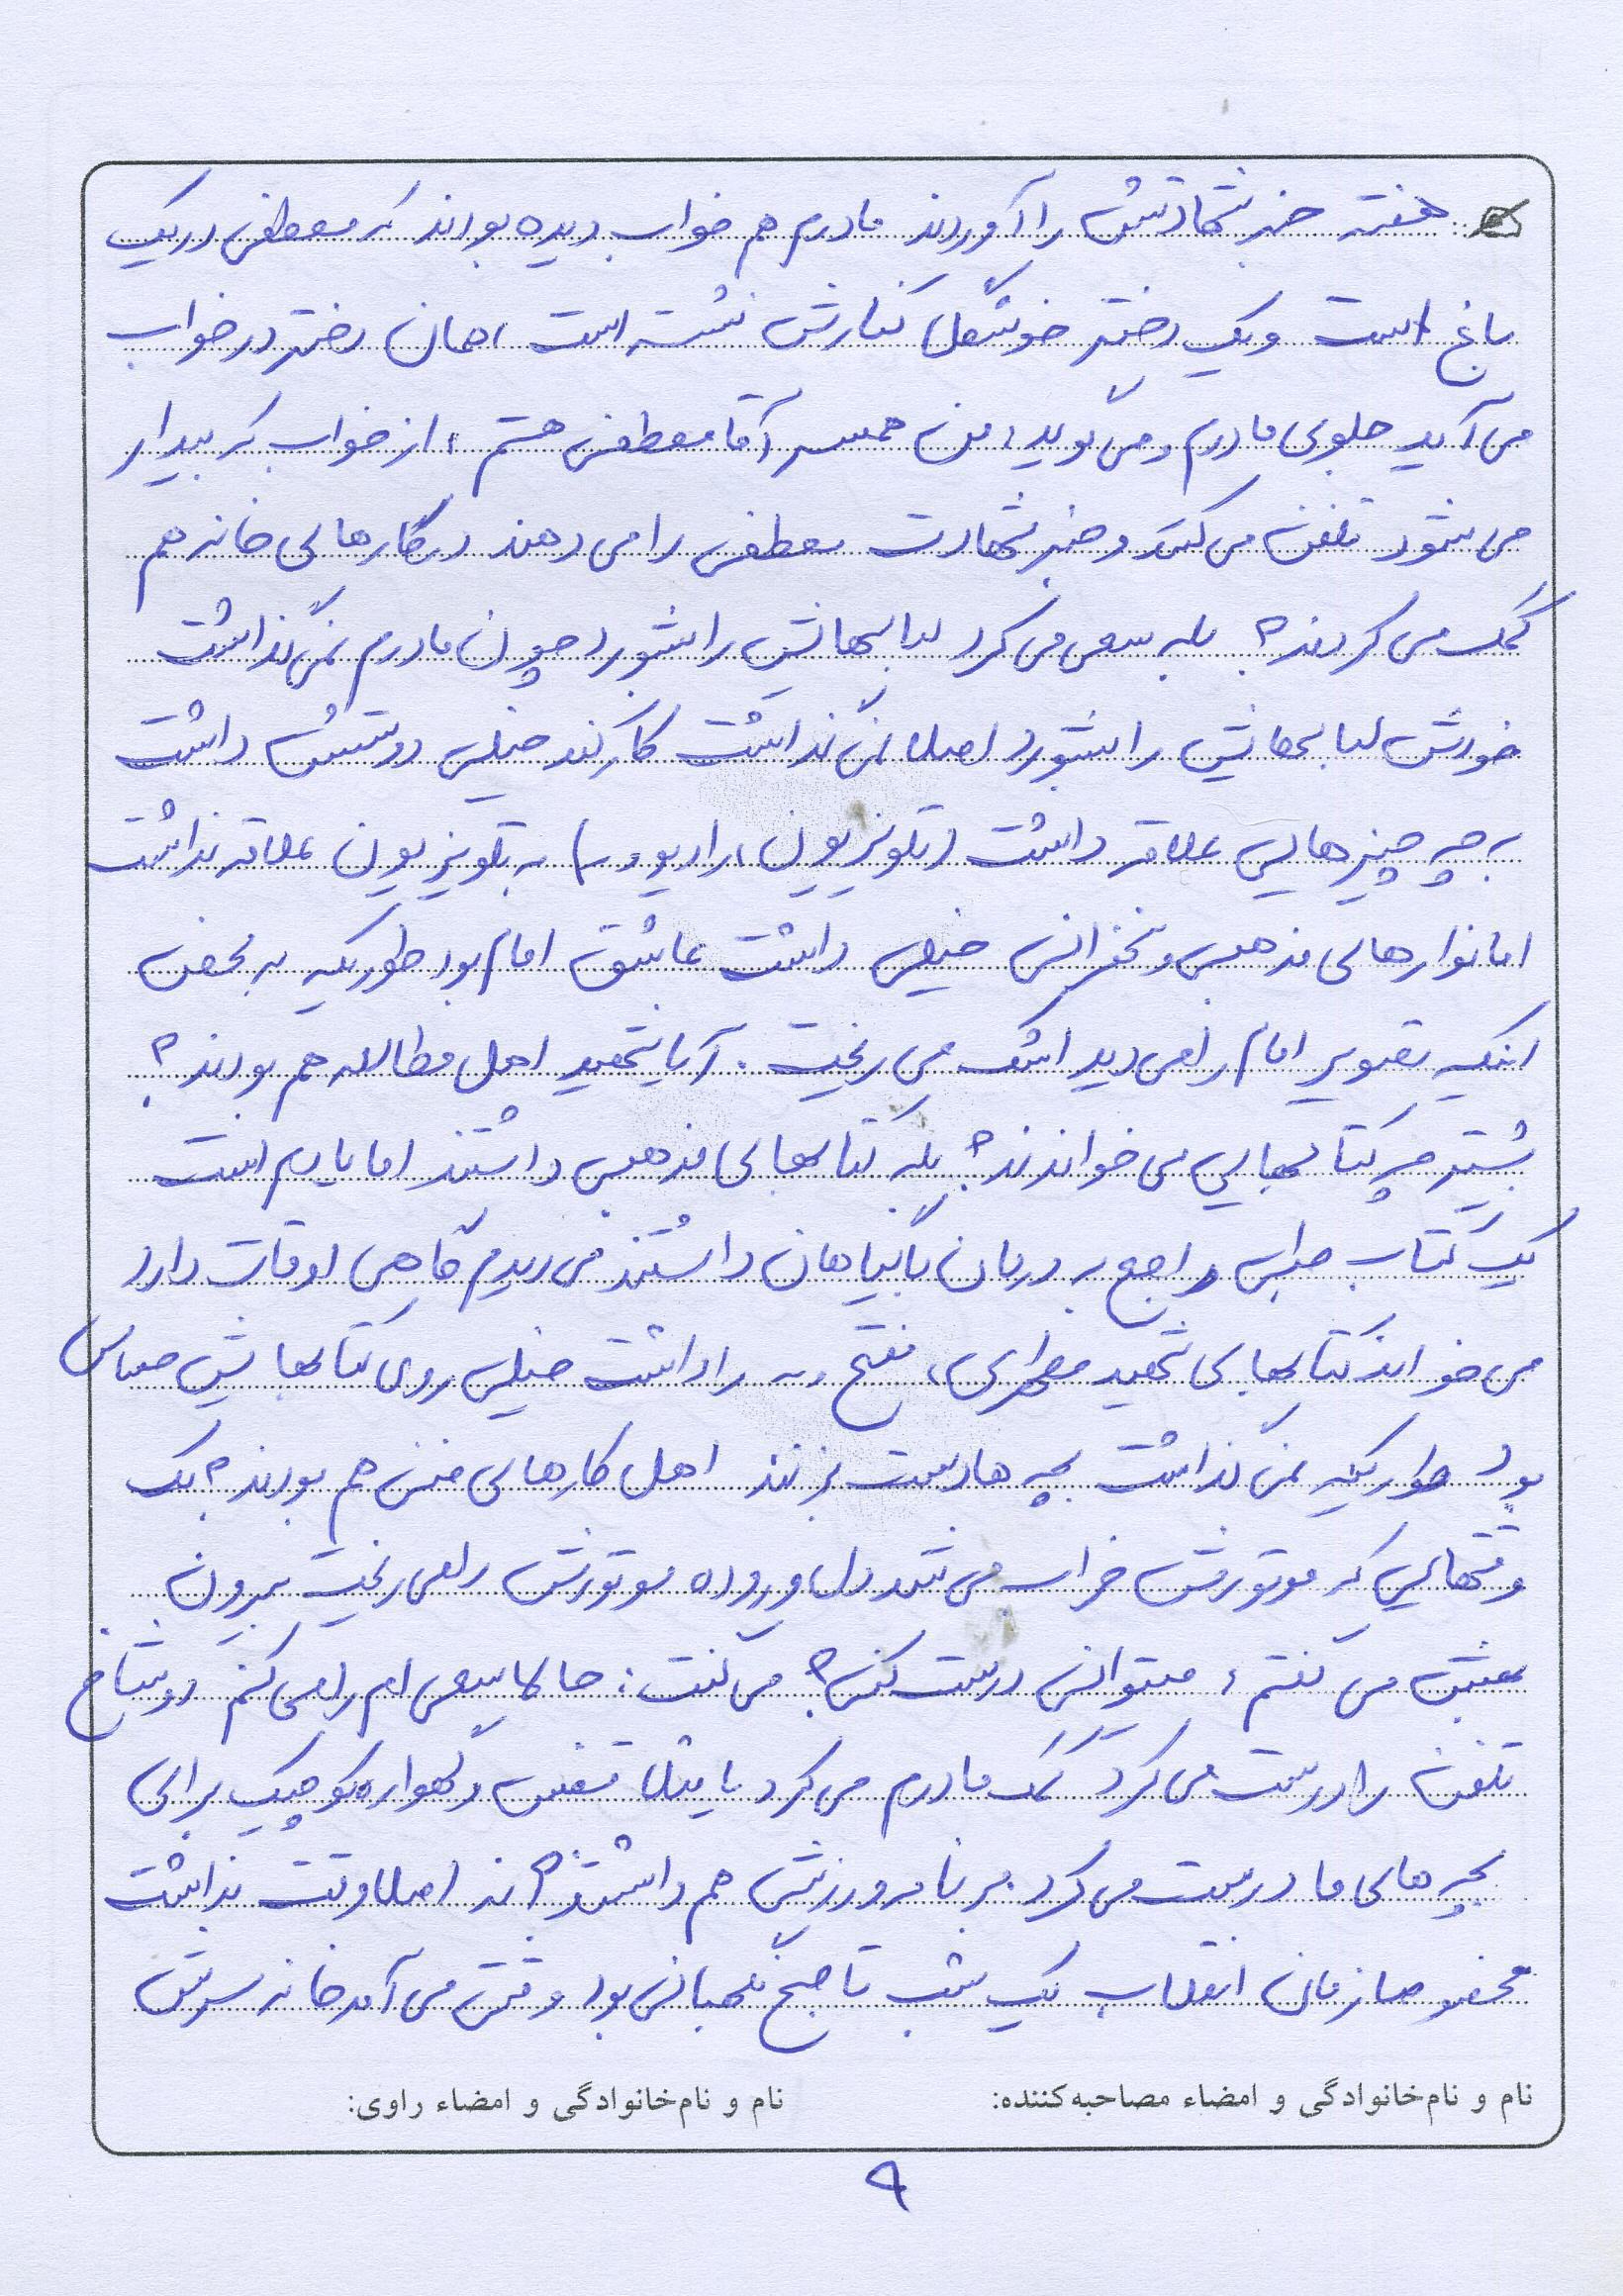 هفته خبر شهادتش را آوردند مادرم هم خواب دیده بودند که مصطفی در یک
باغ است و یک دختر خوشگل کنارش نشسته است، همان دختر در خواب
می‌آید جلوی مادرم و می‌گوید، من همسر آقا مصطفی هستم، از خواب که بیدار
می‌شود تلفن می‌کنند و خبر شهادت مصطفی را می‌دهند در کارهای خانه هم
کمک می‌کردند؟ بله سعی می‌کرد لباسهایش را بشورد چون مادرم نمی‌گذاشت
خودش لباسهایش را بشورد اصلا نمی‌گذاشت کار کند خیلی دوستش داشت
به چه چیزهایی علاقه داشت (تلویزیون، رادیو و ...) به تلویزیون علاقه نداشت
اما نوارهای مذهبی و سخنرانی خیلی داشت عاشق امام بود طوریکه به محض
اینکه تصویر امام را می‌دید اشک می‌ریخت. آیا شهید اهل مطالعه هم بودند؟
بیشتر چه کتابهایی می‌خواندند؟ بله کتابهای مذهبی داشتند اما یادم است
یک کتاب طبی راجع به درمان با گیاهان داشتند می‌دیدم گاهی اوقات دارد
می‌خواند کتابهای شهید مطهری، مفتح و ... را داشت خیلی روی کتابهایش حساس
بود طوریکه نمی‌گذاشت بچه‌ها دست بزنند اهل کارهای فنی هم بودند؟ یک
وقتهایی که موتورش خراب می‌شد دل و روده موتورش را می‌ریخت بیرون
بهش می‌گفتم، میتوانی درست کنی؟ می‌گفت: حالا سعی ام را می‌کنم دوشاخ
تلفن را درست می‌کرد کمک مادرم می‌کرد یا مثلا قفس و گهواره کوچیک برای
بچه‌های ما درست می‌کرد. برنامه ورزش هم داشتند؟ نه اصلا وقت نداشت
مخصوصا زمان انقلاب یک شب تا صبح نگهبانی بود وقتی می‌آمد خانه سرش
نام و نام‌خانوادگی و امضاء مصاحبه‌کننده: نام و نام‌خانوادگی و امضاء راوی:
۹